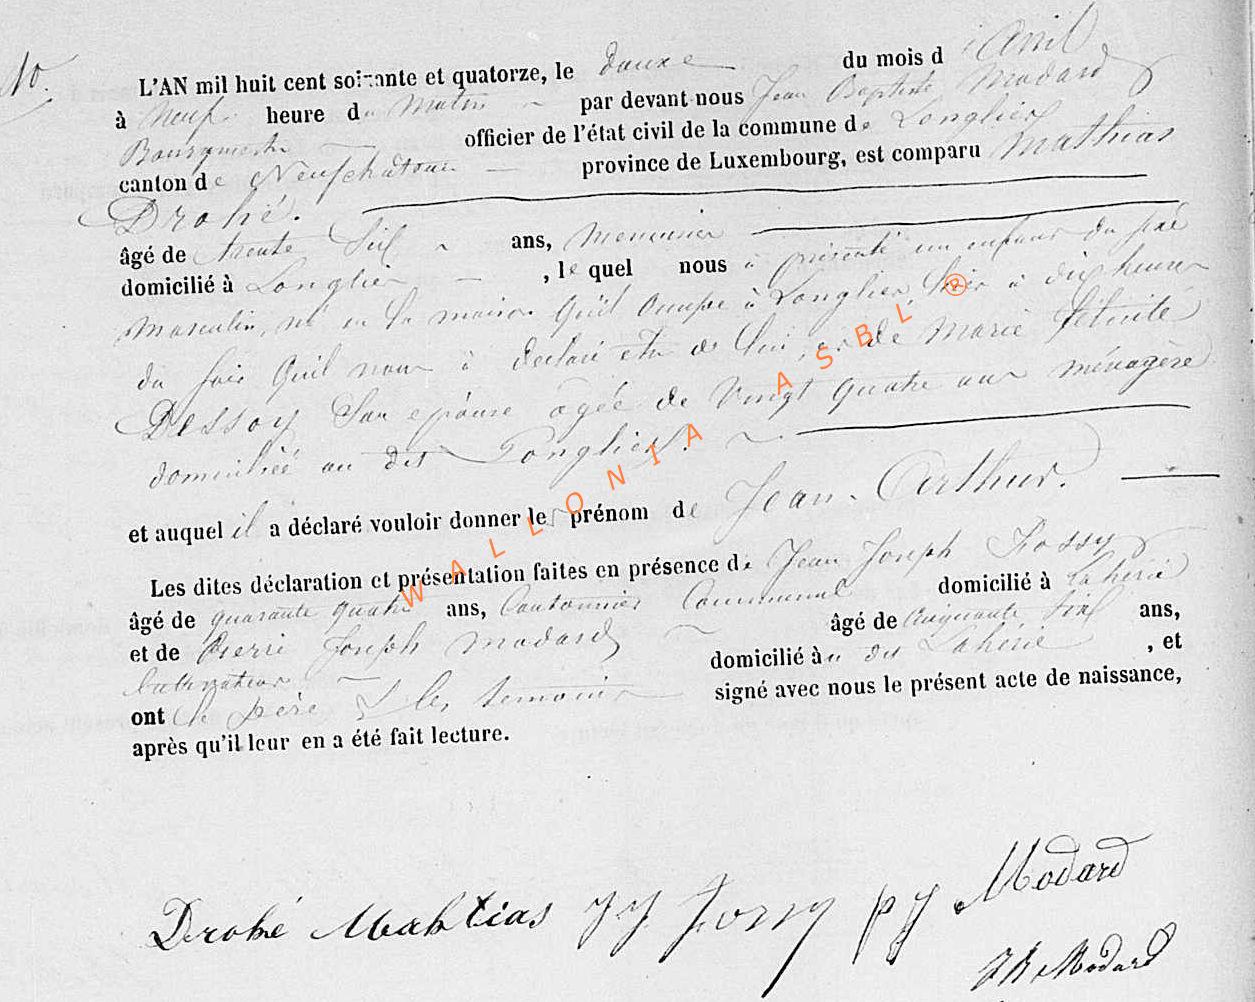 No.
L'AN mil huit cent soixante et quatorze, le douze du mois d'avril
à Neuf heure du Matin par devant nous Jean Baptiste Modard
Bourgmestre officier de l'état civil de la commune de Longlier
canton de Neufchateau province de Luxembourg, est comparu Mathias
Drohé.
âgé de trente six ans, Menuisier
domicilié à Longlier , lequel nous a présenté un enfant du sexe
Masculin, né en la maison qu'il occupe à Longlier, hier à dix heures
du soir qu'il nous a déclaré etre de lui, et de Marie
Dessoy Son epouse agée de Vingt quatre ans ménagère
domiciliée au dit Longlier.
et auquel il a déclaré vouloir donner le prénom de Jean-Arthur.
Les dites déclaration et présentation faites en présence de Jean Joseph
âgé de quarante quatre ans, Cantonnier Communal domicilié à Laherie
et de Pierre Joseph Modard âgé de Cinquante six ans,
Cultivateur domicilié au dit Laherie , et
ont le père & les temoins signé avec nous le présent acte de naissance,
après qu'il leur en a été fait lecture.
Drohé Mathias JJ PJ Modard
JB Modard
WALLONIA ASBL ®